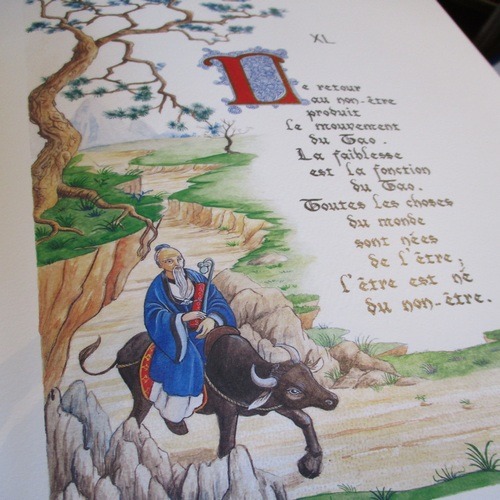 XL
Le retour
au non-être
produit
le mouvement
du Tao.
La faiblesse
est la fonction
du Tao.
Toutes les choses
du monde
sont nées
de l'être ;
l'être est né
du non-être.